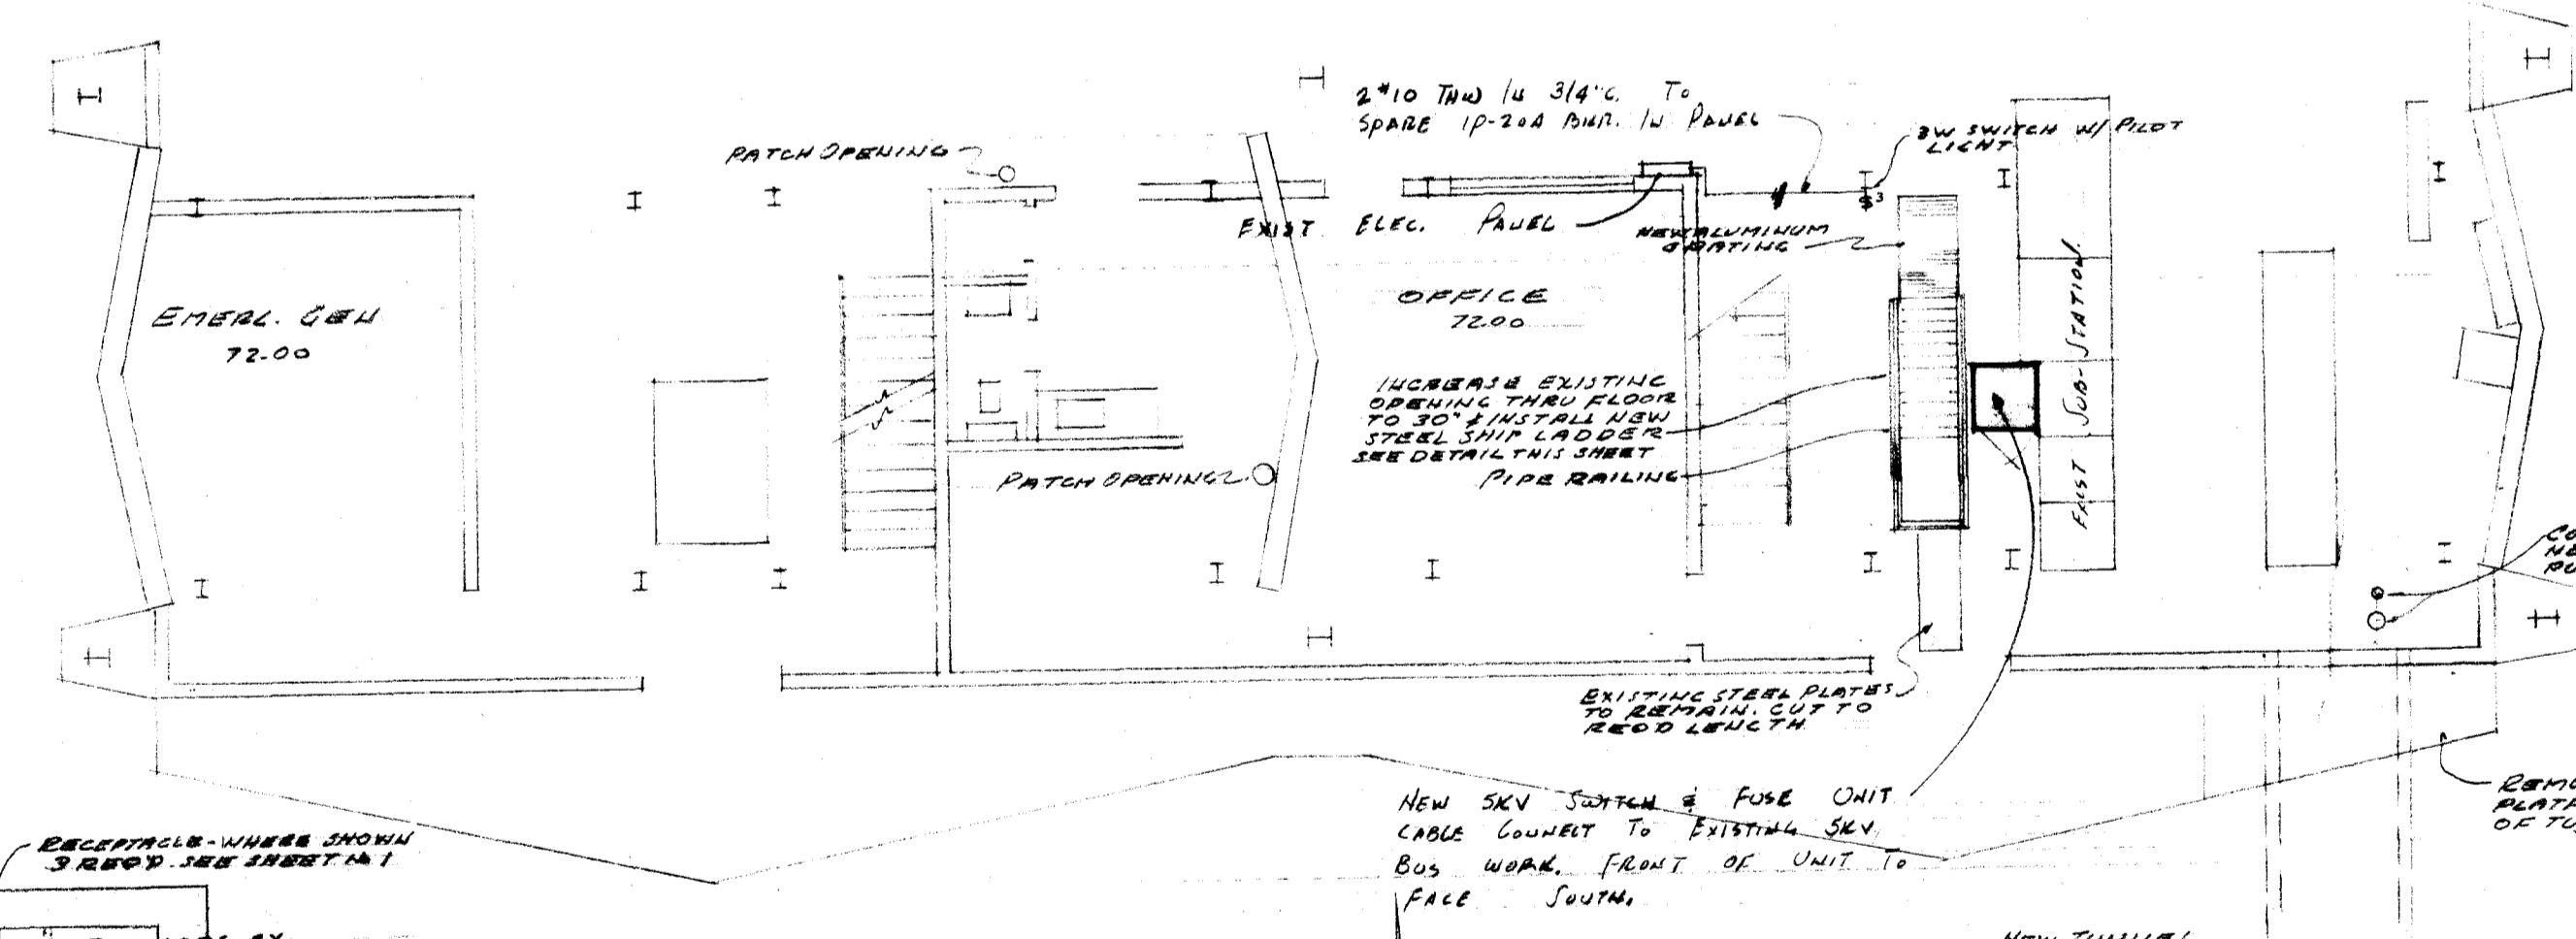 2 #10 THW IN 3/4" C. TO
SPARE 1P-20A BKR. IN PANEL
3W SWITCH W/ PILOT
LIGHT
PATCH OPENING
$3
EXIST ELEC. PANEL
NEW ALUMINUM
GRATING
EMERG. GEN
72.00
OFFICE
72.00
INCREASE EXISTING
OPENING THRU FLOOR
TO 30" & INSTALL NEW
STEEL SHIP LADDER
SEE DETAIL THIS SHEET
PIPE RAILING
PATCH OPENING
SUB-STATION
EXISTING STEEL PLATES
TO REMAIN. CUT TO
REQD LENGTH
NEW 5KV SWITCH & FUSE UNIT
CABLE CONNECT TO EXISTING 5KV
BUS WORK. FRONT OF UNIT TO
FACE SOUTH.
RECEPTACLE-WHERE SHOWN
3 REQ'D. SEE SHEET No 1
OF
NEW TUNNEL